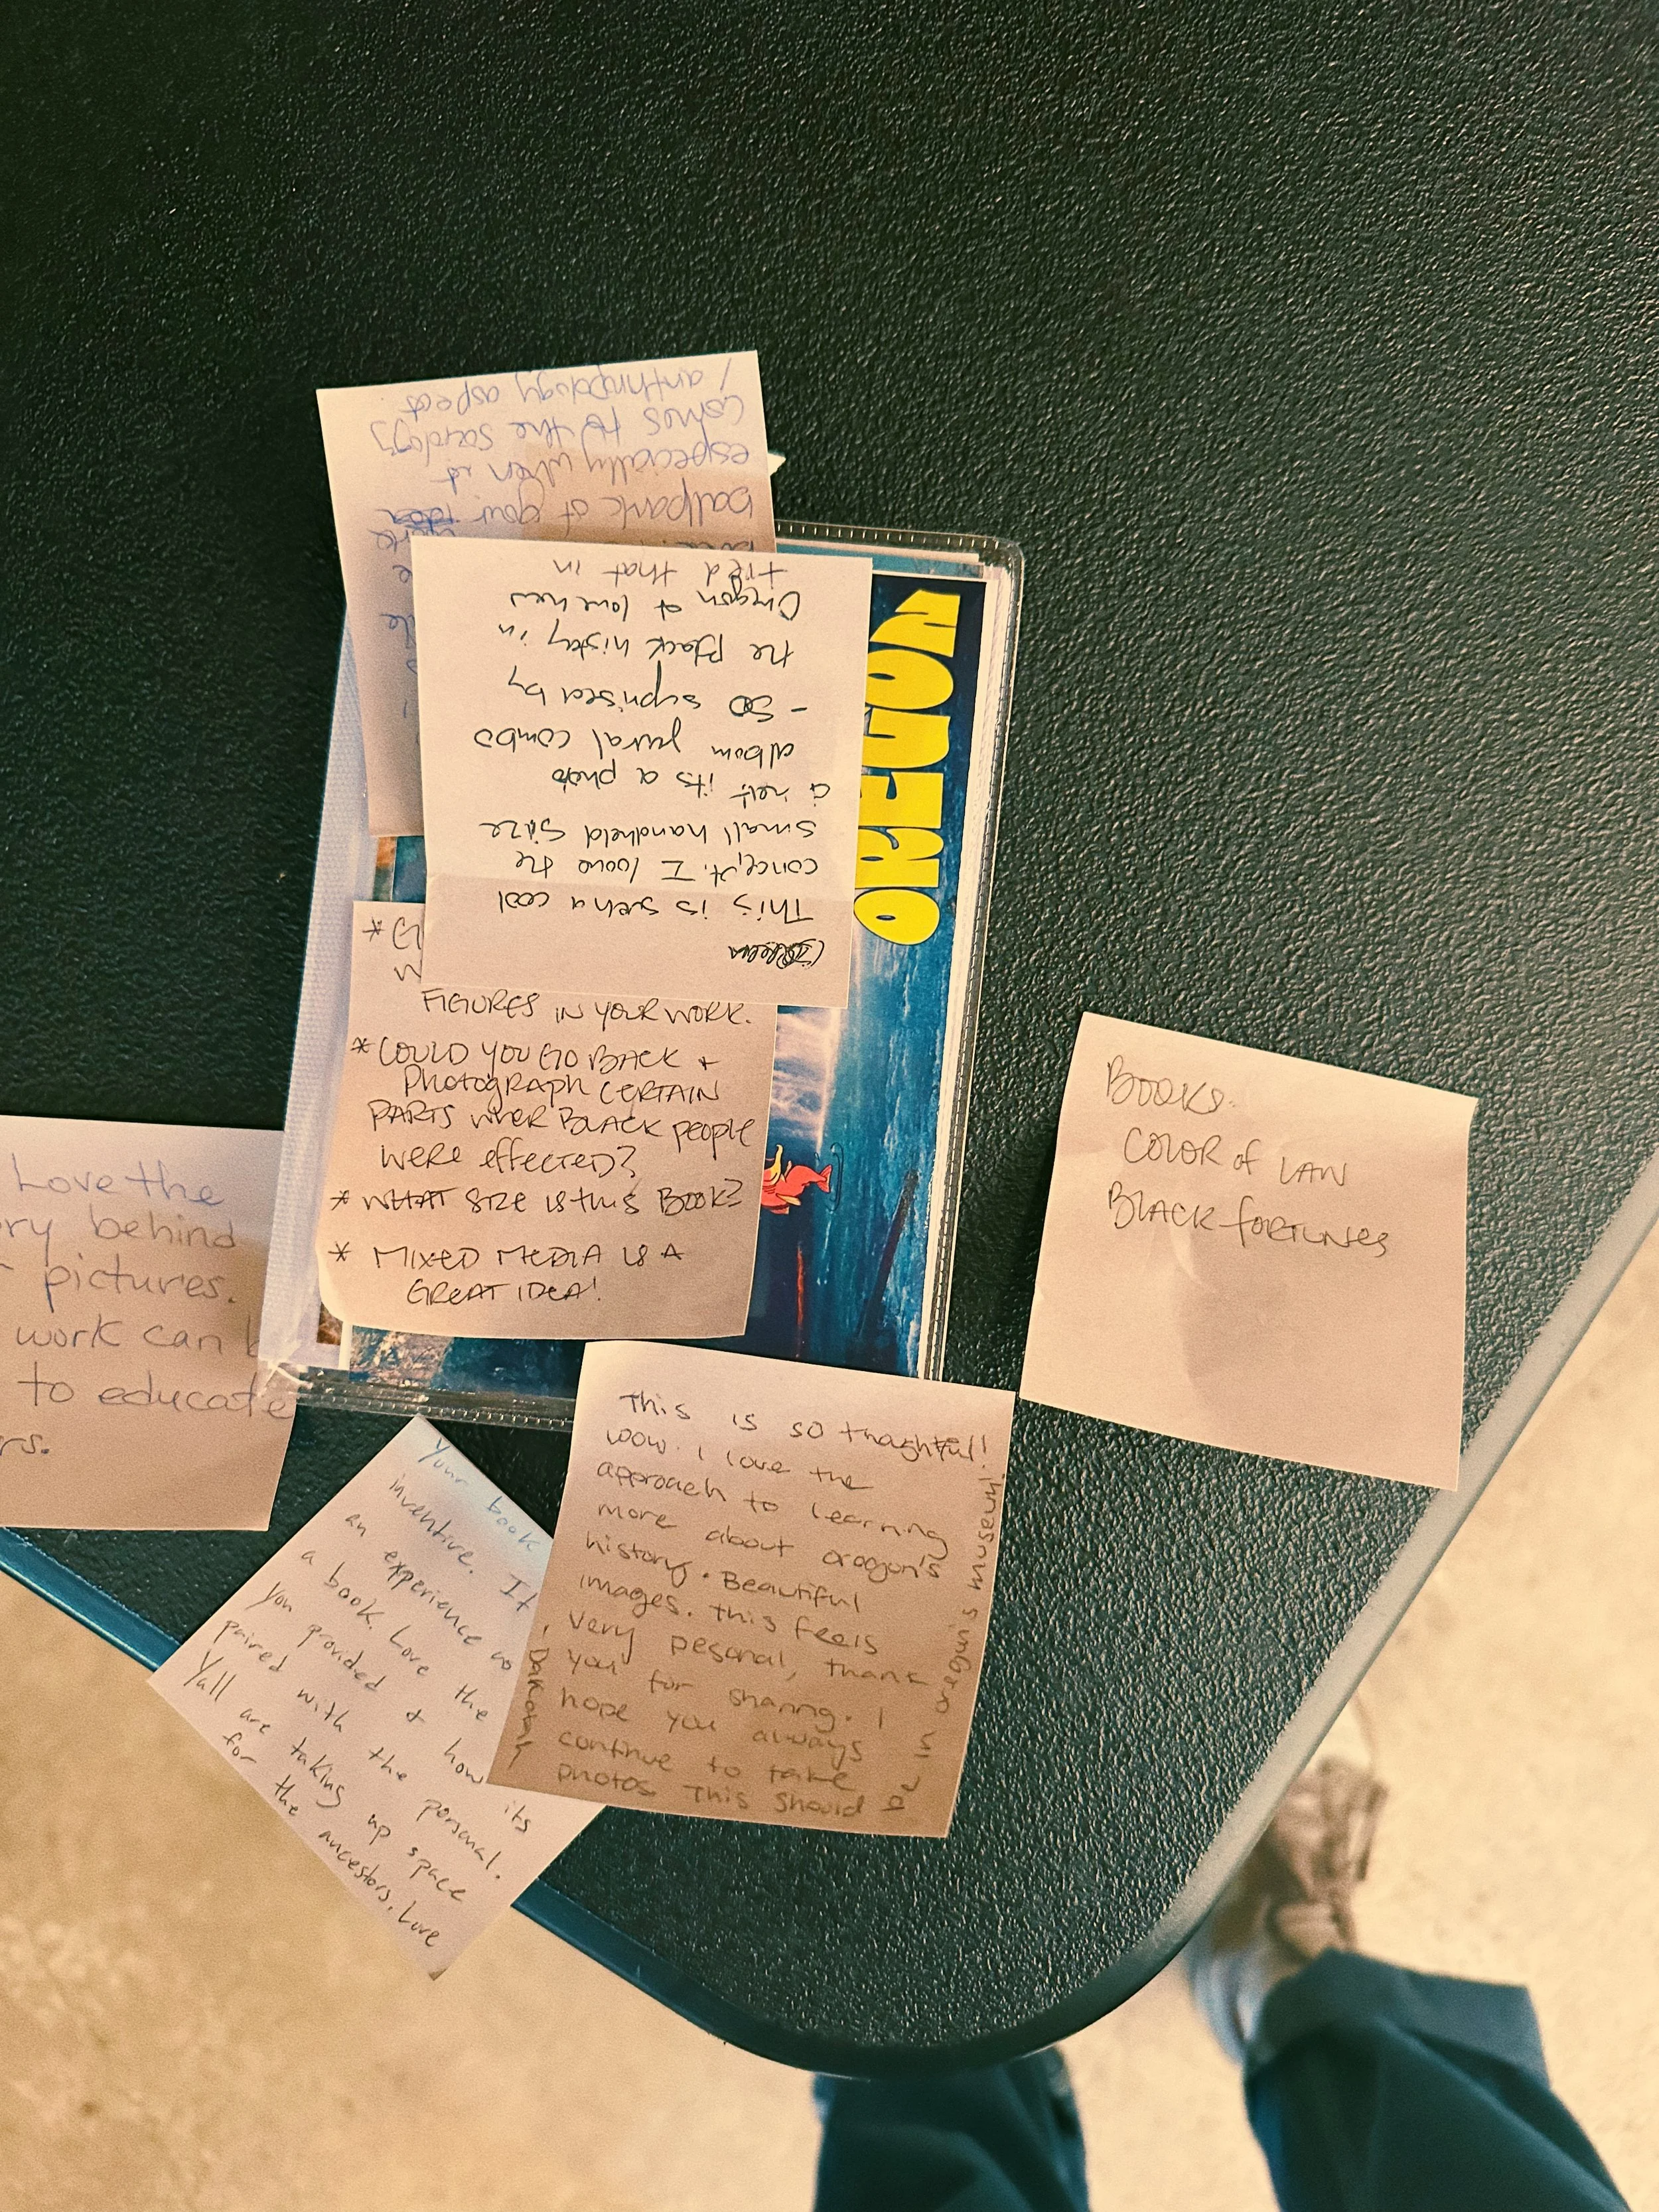 ballpark of your idea
especially when it
comes to the sociology
/ anthropology aspect
This is such a cool
concept. I love the
small handheld size
it's a photo
album combo
- SO suprised by
the Black history in
Oregon & love how
tied that in
OREGON
FIGURES IN YOUR WORK.
* COULD YOU GO BACK +
PHOTOGRAPH CERTAIN
PARTS WHER BLACK PEOPLE
WERE EFFECTED?
* WHAT SIZE IS THIS BOOK?
* MIXED MEDIA IS A
GREAT IDEA!
BOOKS:
COLOR of LAW
BLACK FORTUNES
Love the
ry behind
pictures.
work can b
to educate
rs.
Your book
inventive. It
an experience
a book. Love the
you provided & how its
paired with the personal.
Yall are taking up space
for the ancestors. Love
This is so thoghtful!
wow. I love the
approach to learning
more about oregon's
history. Beautiful
images. this feels
very pesonal, thank
you for sharing. I
hope you always
continue to take
photos This should
be in oregon's museum!
Dakotah